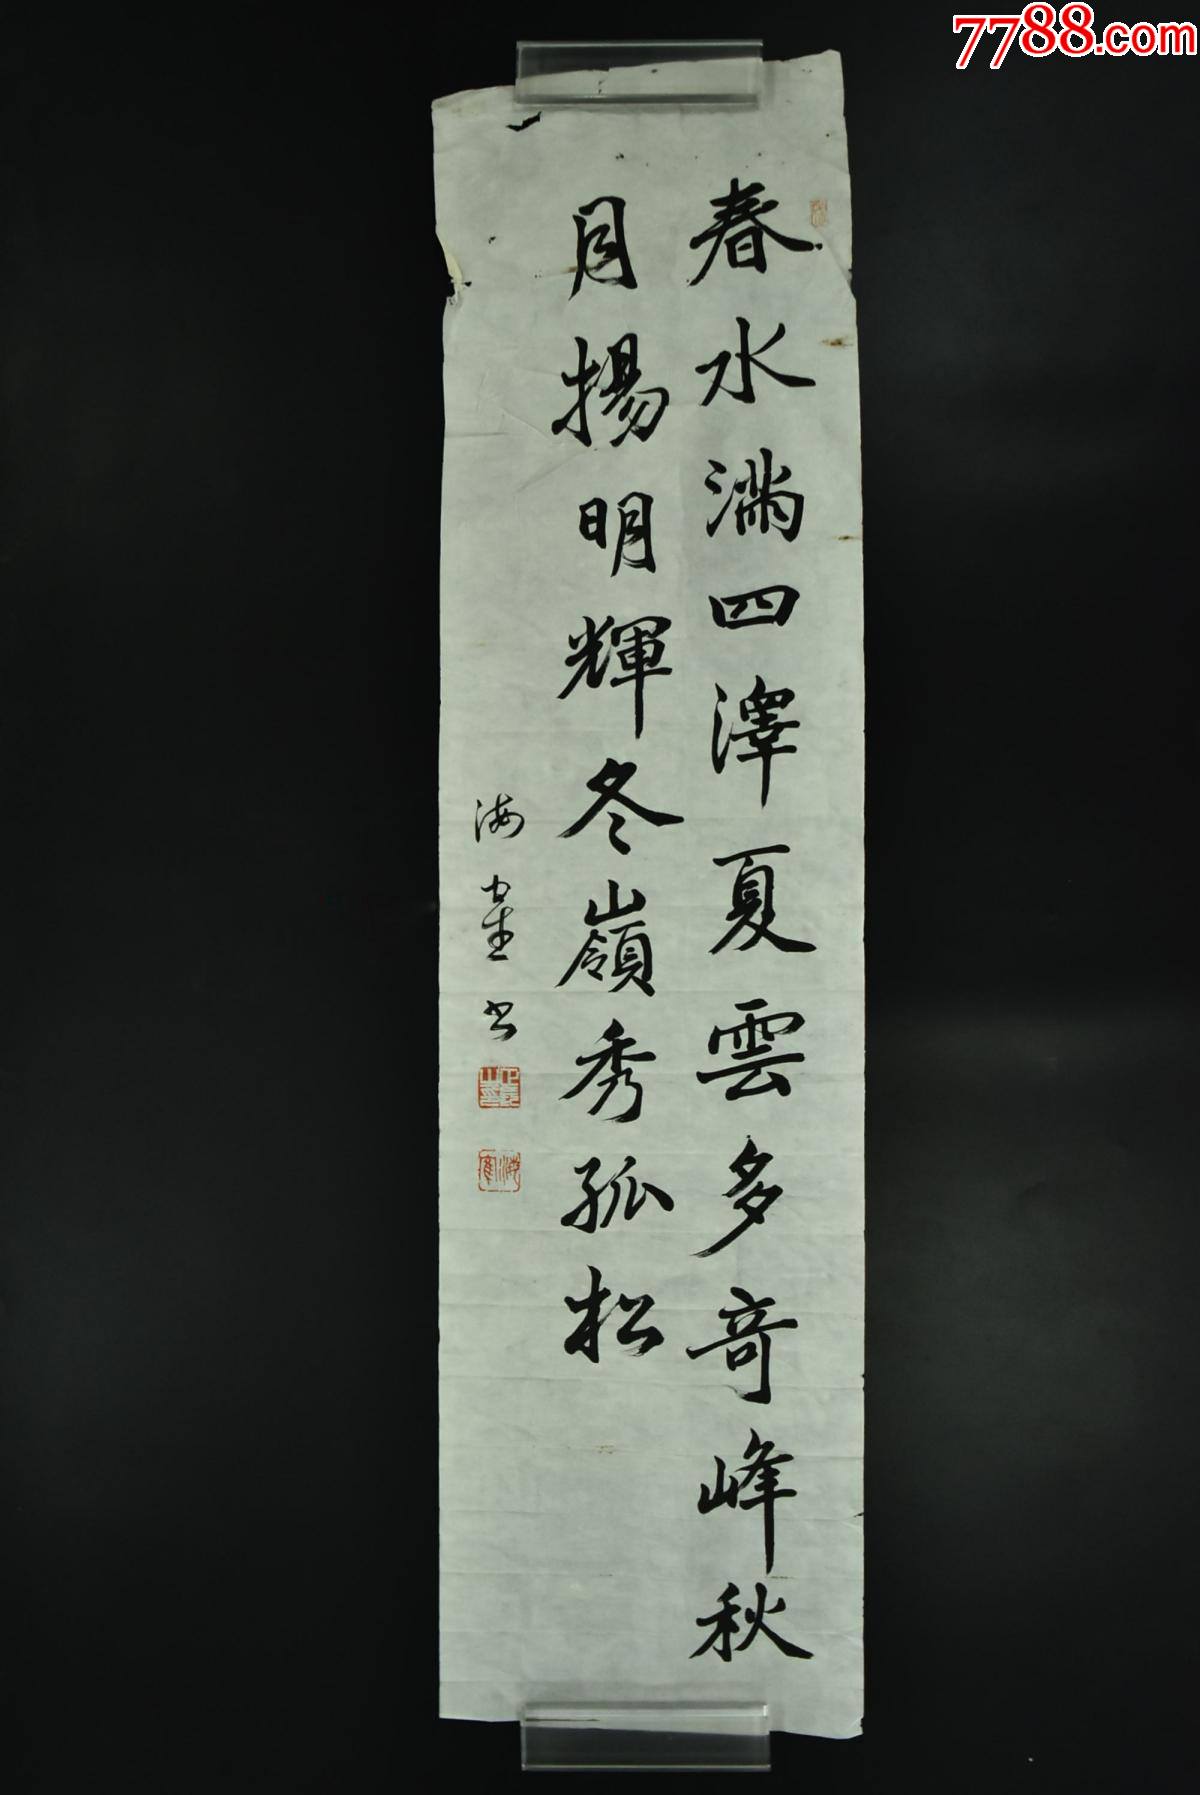 7788.com
春水滿四澤夏雲多奇峰秋
月揚明輝冬嶺秀孤松
海堂書